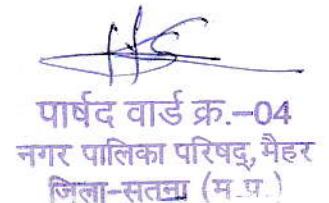 पार्षद वार्ड क्र.–04
नगर पालिका परिषद्, मैहर
जिला–सतना (म.प्र.)